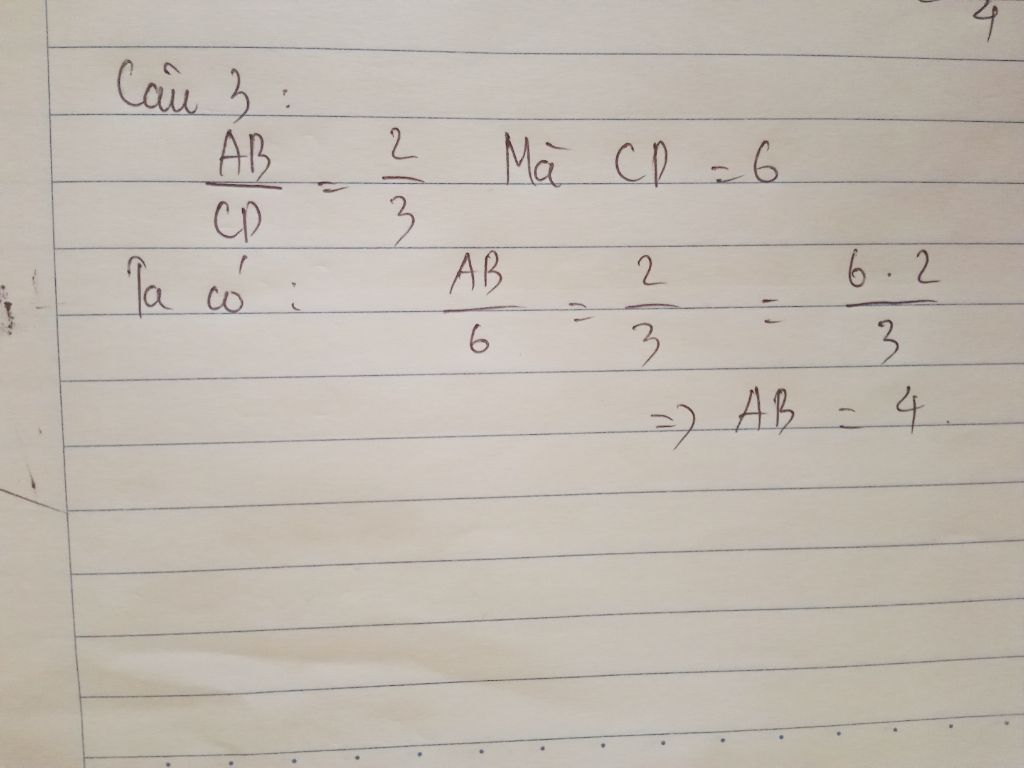 4
Câu 3 :
AB/CD = 2/3 Mà CD = 6
Ta có : AB/6 = 2/3 = 6 . 2/3
=) AB = 4.